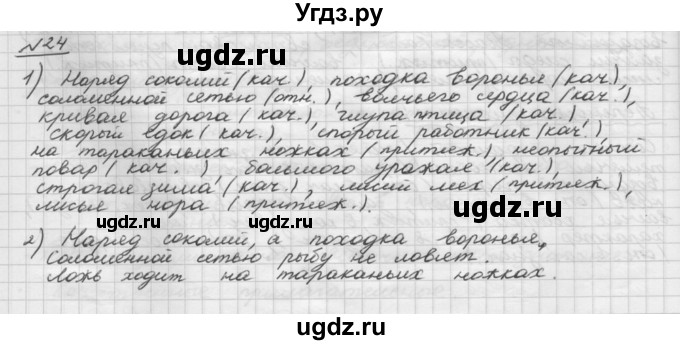 Угдз.ру
№24
ugdz.ru ugdz.ru
1) Наряд соколий (кач.), походка воронья (кач.),
соломенной сетью (отн.), волчьего сердца (кач.),
кривая дорога (кач.), глупа птица (кач.),
скорый едок (кач.), спорый работник (кач.),
на тараканьих ножках (притяж.), неопытный
повар (кач.), большого урожая (кач.),
ugdz.ru
строгая зима (кач.), лисий мех (притяж.),
лисья нора (притяж.).
ugdz.ru ugdz.ru
2) Наряд соколий, а походка воронья,
Соломенной сетью рыбу не ловят.
Ложь ходит на тараканьих ножках.
ugdz.ru ugdz.ru